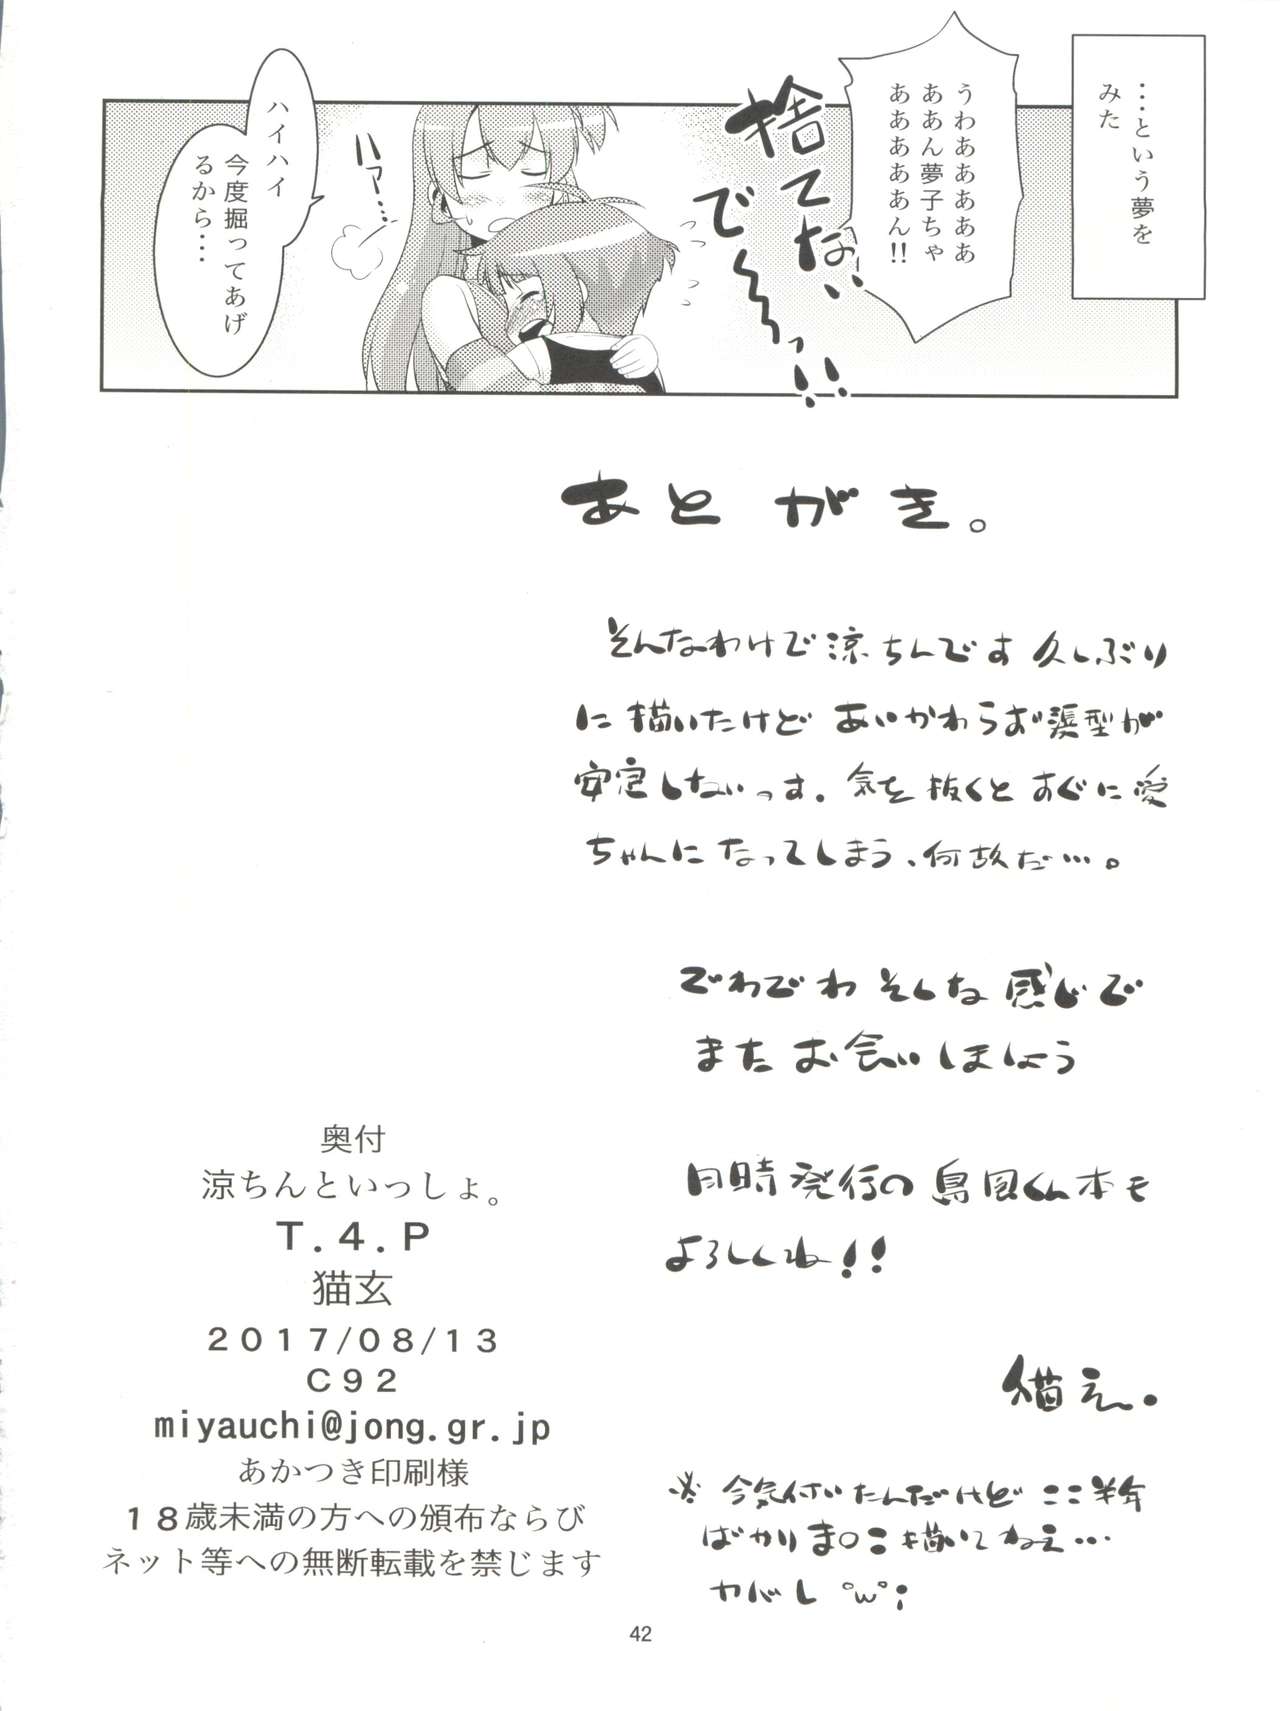 ･･･という夢を
みた
うわあああああ
ああん夢子ちゃ
ああああああん!!
捨てない
で〜〜っ!!
ハァ…
ハイハイ
今度掘ってあげ
るから･･･
あとがき。
そんなわけで涼ちんです久しぶり
に描いたけどあいかわらず
安定しないっす。気を抜くとすぐに愛
ちゃんになってしまう、何故だ…。
でわでわそんな感じで
またお会いしましょう
同時発行の島風くん本も
よろしくね!!
猫玄。
※今気付いたんだけどここ半年
ばかりま○こを描いてねえ…
ヤバし °ω°;
奥付
涼ちんといっしょ。
T.4.P
猫玄
2017/08/13
C92
miyauchi@jong.gr.jp
あかつき印刷様
18歳未満の方への頒布ならび
ネット等への無断転載を禁じます
42